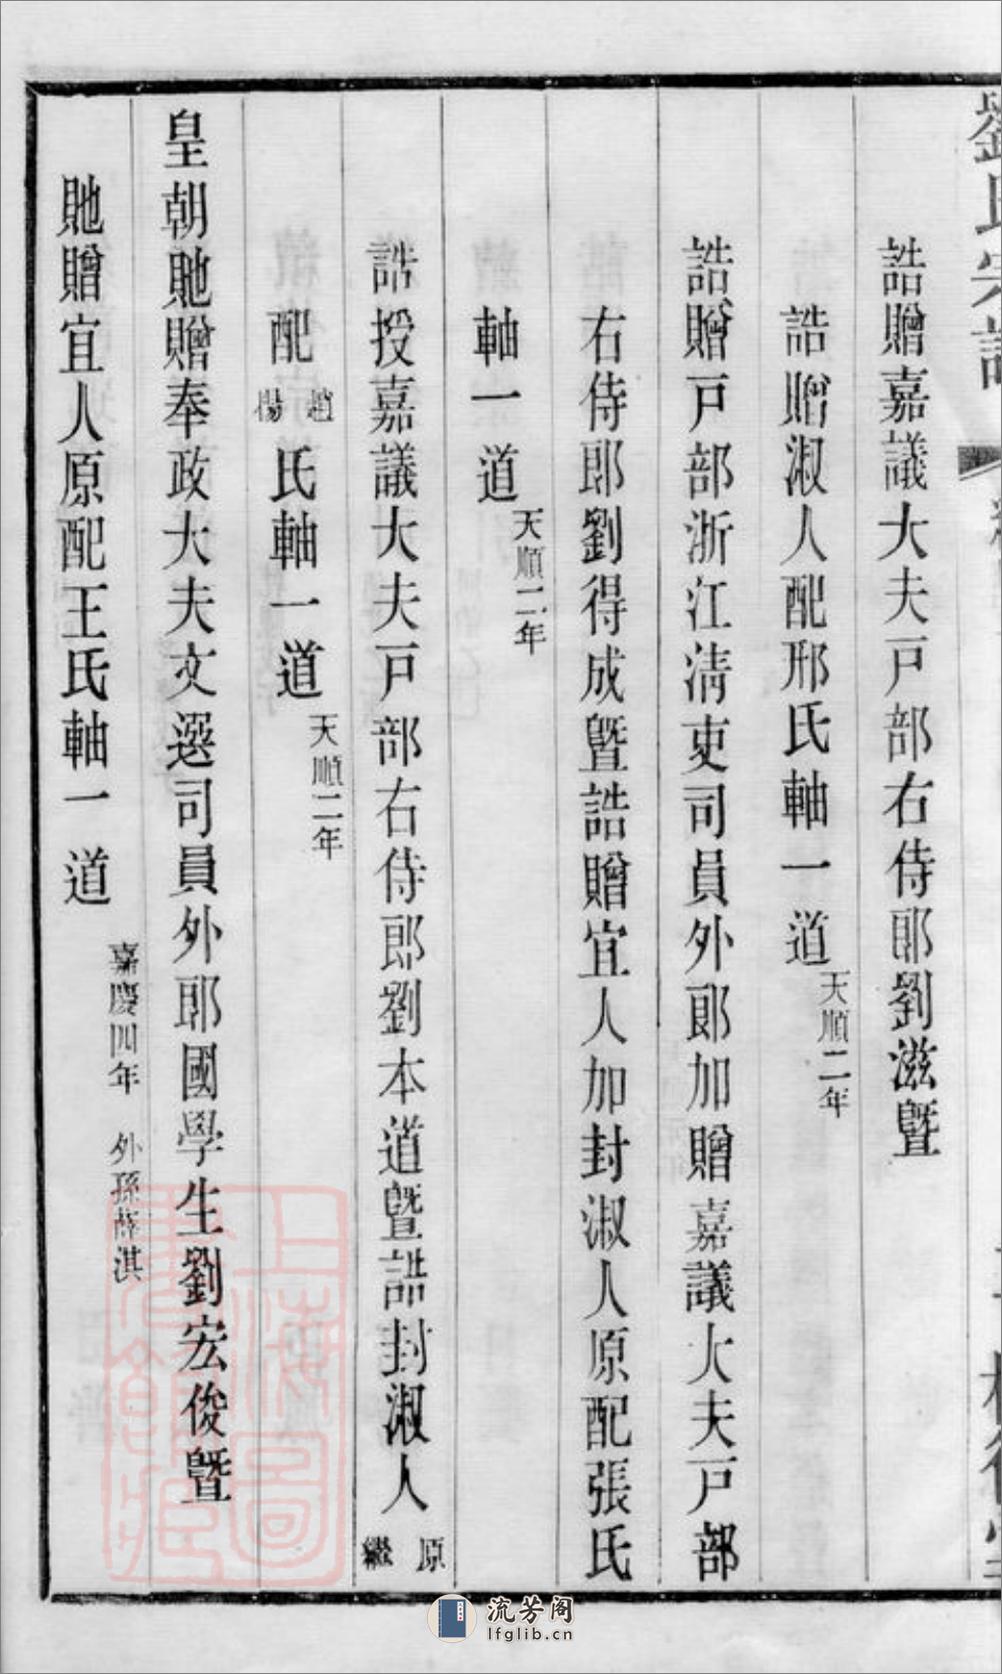 劉氏宗譜
誥贈嘉議大夫戸部右侍郎劉滋曁
誥贈淑人配邢氏軸一道天順二年
誥贈戸部浙江淸吏司員外郎加贈嘉議大夫戸部
右侍郎劉得成曁誥贈宜人加封淑人原配張氏
軸一道天順二年
誥授嘉議大夫戸部右侍郎劉本道曁誥封淑人原繼
配趙楊氏軸一道天順二年
皇朝貤贈奉政大夫文選司員外郎國學生劉宏俊曁
貤贈宜人原配王氏軸一道嘉慶四年 外孫薛淇
上海圖書館藏
流芳阁
lfglib.cn